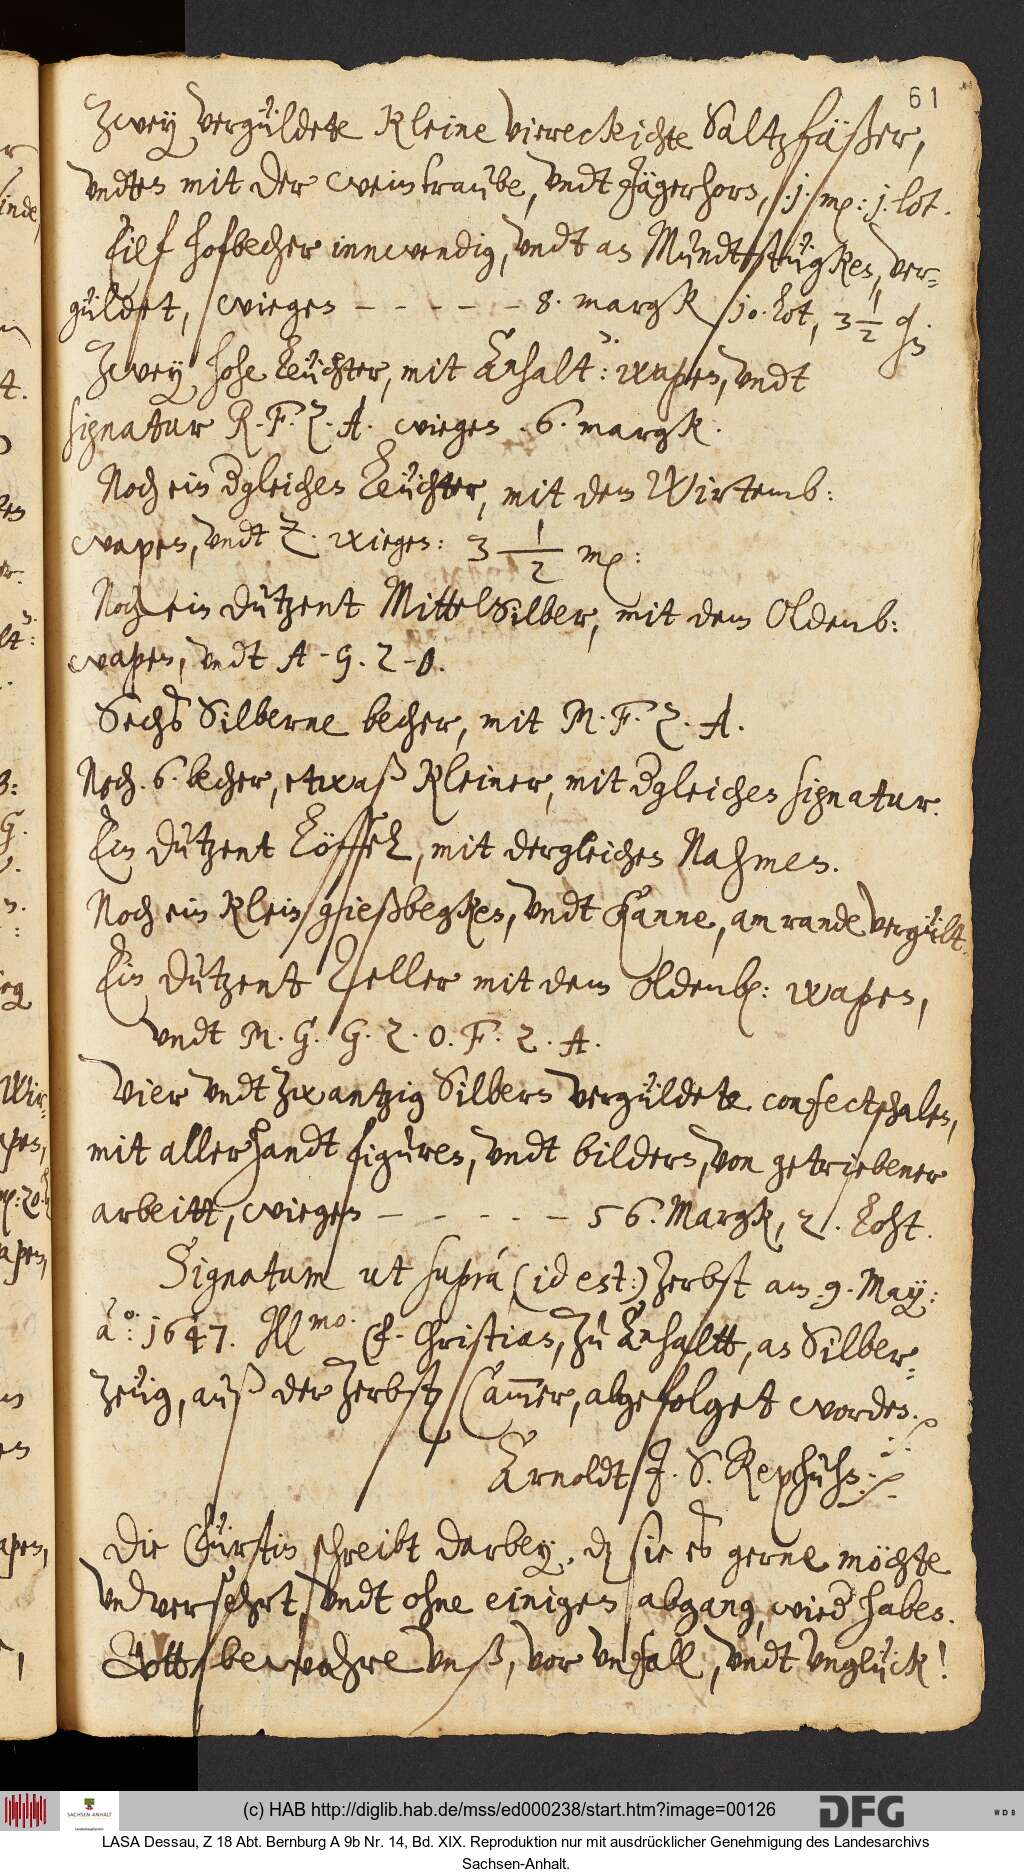 61
Zwey vergüldete kleine viereckichte Saltzfäßer,
undten mit der weintraube, undt Jägerhorn, /: j: mg: j. lot.
Eilf hofbecher innwendig, undt an Mundtstügken, ver=
güldet, wiegen - - - - - 8. margk 10. Lot, 3 1/2
Zwey hohe Leüchter, mit Anhalt: wapen, undt
signatur R. F. Z. A. wiegen . 6. margk.
Noch ein dgleichen Leüchter, mit dem Wirtemb:
wapen, undt Z. wiegen: 3 1/2 mg:
Noch ein dutzent MittelSilber, mit dem Oldenb:
wapen, undt A - G. Z - O.
Sechs Silberne becher, mit M. F. Z. A.
Noch. 6. becher, etwaß kleiner, mit dgleichen signatur.
Ein dutzent Löffel, mit dergleichen Nahmen.
Noch ein klein gießbegken, undt Kanne, am rande vergült.
Ein dutzent Teller mit dem oldenb: wapen,
undt M. G. G. Z. O. F. Z. A.
Vier undt zwantzig Silbern vergüldete confectschalen,
mit allerhandt figuren, undt bildern, von getriebener
arbeitt, wiegen - - - - - 56. Margk, 2. Loht.
Signatum ut suprà (id est:) Zerbst am .9. May:
ao: 1647. Illmo. F. Christian, zu Anhaltt, an Silber=
zeüg, auß der Zerbst Cammer, abgefolget worden. ./.
Arnoldt J. S. Rephuhn ./.
Die Fürstin schreibt darbey, dz sie es gerne möchte
unversehrt, undt ohne einigen abgang, wied haben.
Gott bewahre unß, vor unfall, undt unglück!
(c) HAB http://diglib.hab.de/mss/ed000238/start.htm?image=00126
SACHSEN-ANHALT
DFG
WDB
LASA Dessau, Z 18 Abt. Bernburg A 9b Nr. 14, Bd. XIX. Reproduktion nur mit ausdrücklicher Genehmigung des Landesarchivs
Sachsen-Anhalt.